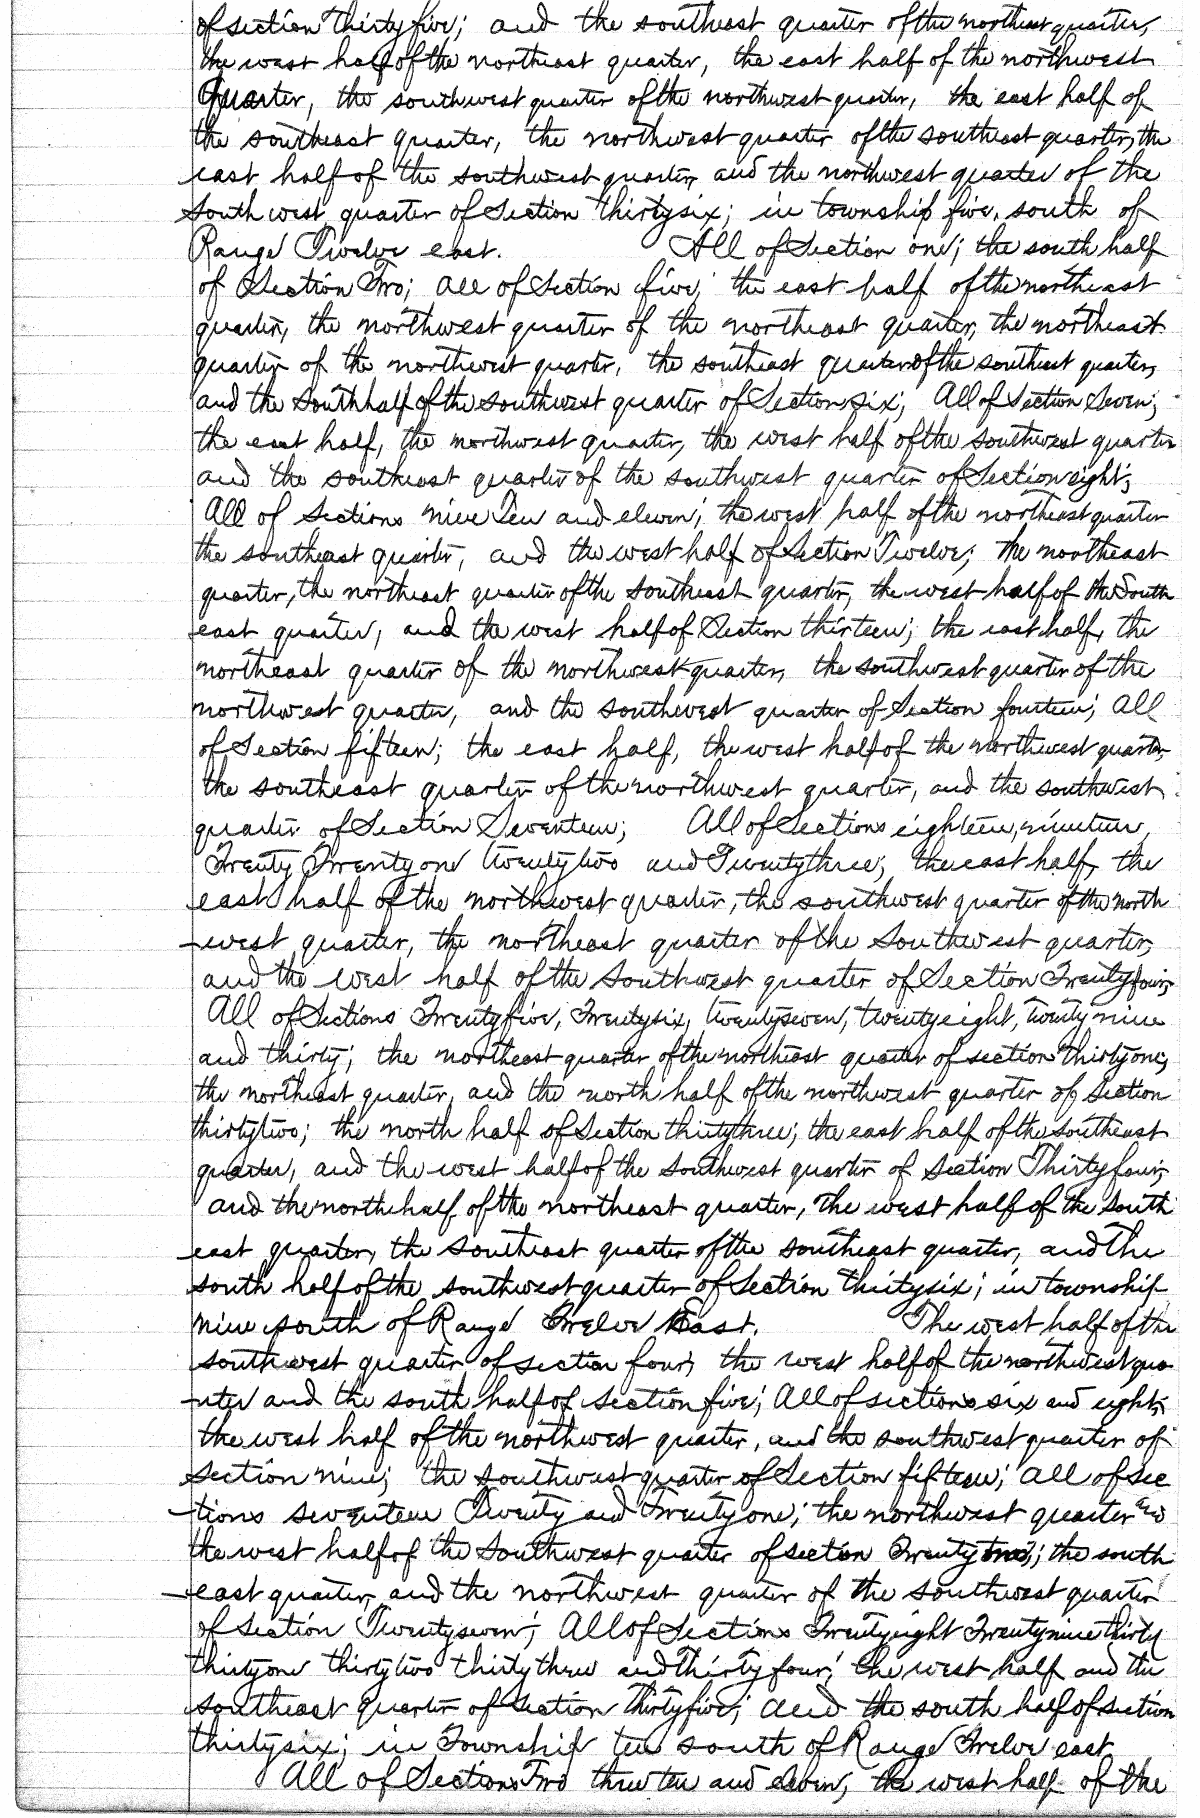 of section thirty five; and the southeast quarter of the northeast quarter,
the west half of the northeast quarter, the east half of the northwest
Quarter, the southwest quarter of the northwest quarter, the east half of
the southeast quarter, the northwest quarter of the southeast quarter, the
east half of the southwest quarter, and the northwest quarter of the
South west quarter of Section thirtysix; in township five, south of
Range Twelve east. All of Section one; the south half
of Section Two; all of Section five; the east half of the northeast
quarter, the northwest quarter of the northeast quarter, the northeast
quarter of the northwest quarter, the southeast quarter of the southeast quarter,
and the South half of the southwest quarter of Section six; All of Section Seven;
the east half, the northwest quarter, the west half of the southwest quarter
and the southeast quarter of the southwest quarter of Section eight;
All of Sections nine Ten and eleven; the west half of the northeast quarter
the southeast quarter, and the west half of Section Twelve; the northeast
quarter, the northeast quarter of the southeast quarter, the west half of the South
east quarter, and the west half of Section thirteen; the east half, the
northeast quarter of the northwest quarter, the southwest quarter of the
northwest quarter, and the southwest quarter of Section fourteen; all
of Section fifteen; the east half, the west half of the northwest quarter,
the southeast quarter of the northwest quarter, and the southwest
quarter of Section Seventeen; All of Sections eighteen, nineteen,
Twenty Twenty one twenty two and Twenty three; the east half, the
east half of the northwest quarter, the southwest quarter of the north
-west quarter, the northeast quarter of the Southwest quarter,
and the west half of the Southwest quarter of Section Twenty four;
All of Sections Twenty five, Twenty six, twenty seven, twenty eight, twenty nine
and thirty; the northeast quarter of the northeast quarter of section thirty one;
the northeast quarter, and the north half of the northwest quarter of Section
thirty two; the north half of Section thirty three; the east half of the Southeast
quarter, and the west half of the Southwest quarter of Section Thirty four;
and the north half of the northeast quarter, the west half of the South
east quarter, the Southeast quarter of the southeast quarter, and the
south half of the southwest quarter of Section thirtysix; in township
nine south of Range Twelve East. The west half of the
southwest quarter of section four, the west half of the northwest qua
-rter and the south half of section five; All of sections six and eight;
the west half of the northwest quarter, and the southwest quarter of
Section nine; the southwest quarter of Section fifteen; all of sec
-tions seventeen Twenty and Twenty one; the northwest quarter and
the west half of the Southwest quarter of section Twenty two; the south
-east quarter, and the northwest quarter of the Southwest quarter
of Section Twenty seven; All of Sections Twenty eight Twenty nine thirty
thirty one thirty two thirty three and Thirty four; the west half and the
southeast quarter of Section thirty five; and the south half of section
thirtysix; in Township ten south of Range Twelve east
All of Sections Two three ten and eleven, the west half of the